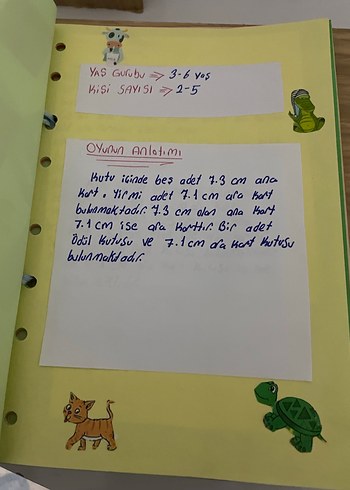 YAŞ Gurubu ⇒ 3-6 yaş
KİŞİ SAYISI ⇒ 2-5
OYUNUN ANLATIMI
Kutu içinde beş adet 7.3 cm ana
kart, yirmi adet 7.1 cm ara kart
bulunmaktadır. 7.3 cm olan ana kart
7.1 cm ise ara karttır. Bir adet
Ödül kutusu ve 7.1 cm ara kart kutusu
bulunmaktadır.